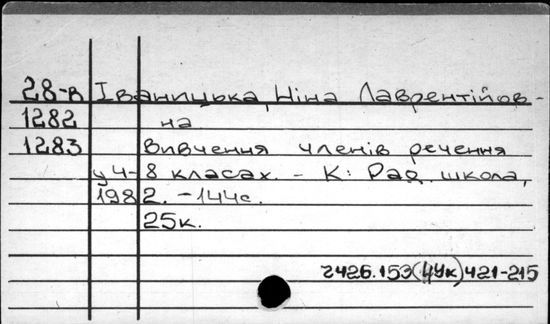 28-в Іваницька, Ніна Лаврентійов-
1282 на
1283 Вивчення членів речення
у 4-8 класах. - К: Рад. школа,
1982. - 144с.
25к.
Ч426.153(4Ук)421-215